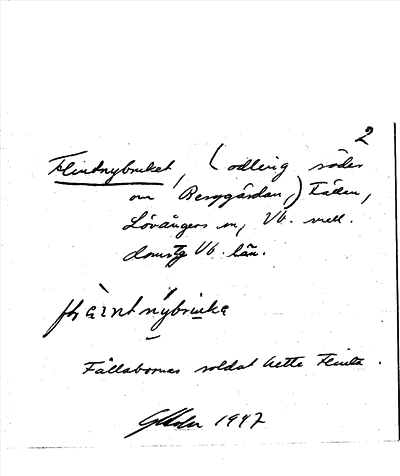 2
Flintnybruket, (odling söder
om Berggårdan,) Fällan,
Lövångers sn, Vb. mell.
domsg Vb. län.
nybruka
Fällabornas soldat hette Flinta.
1947